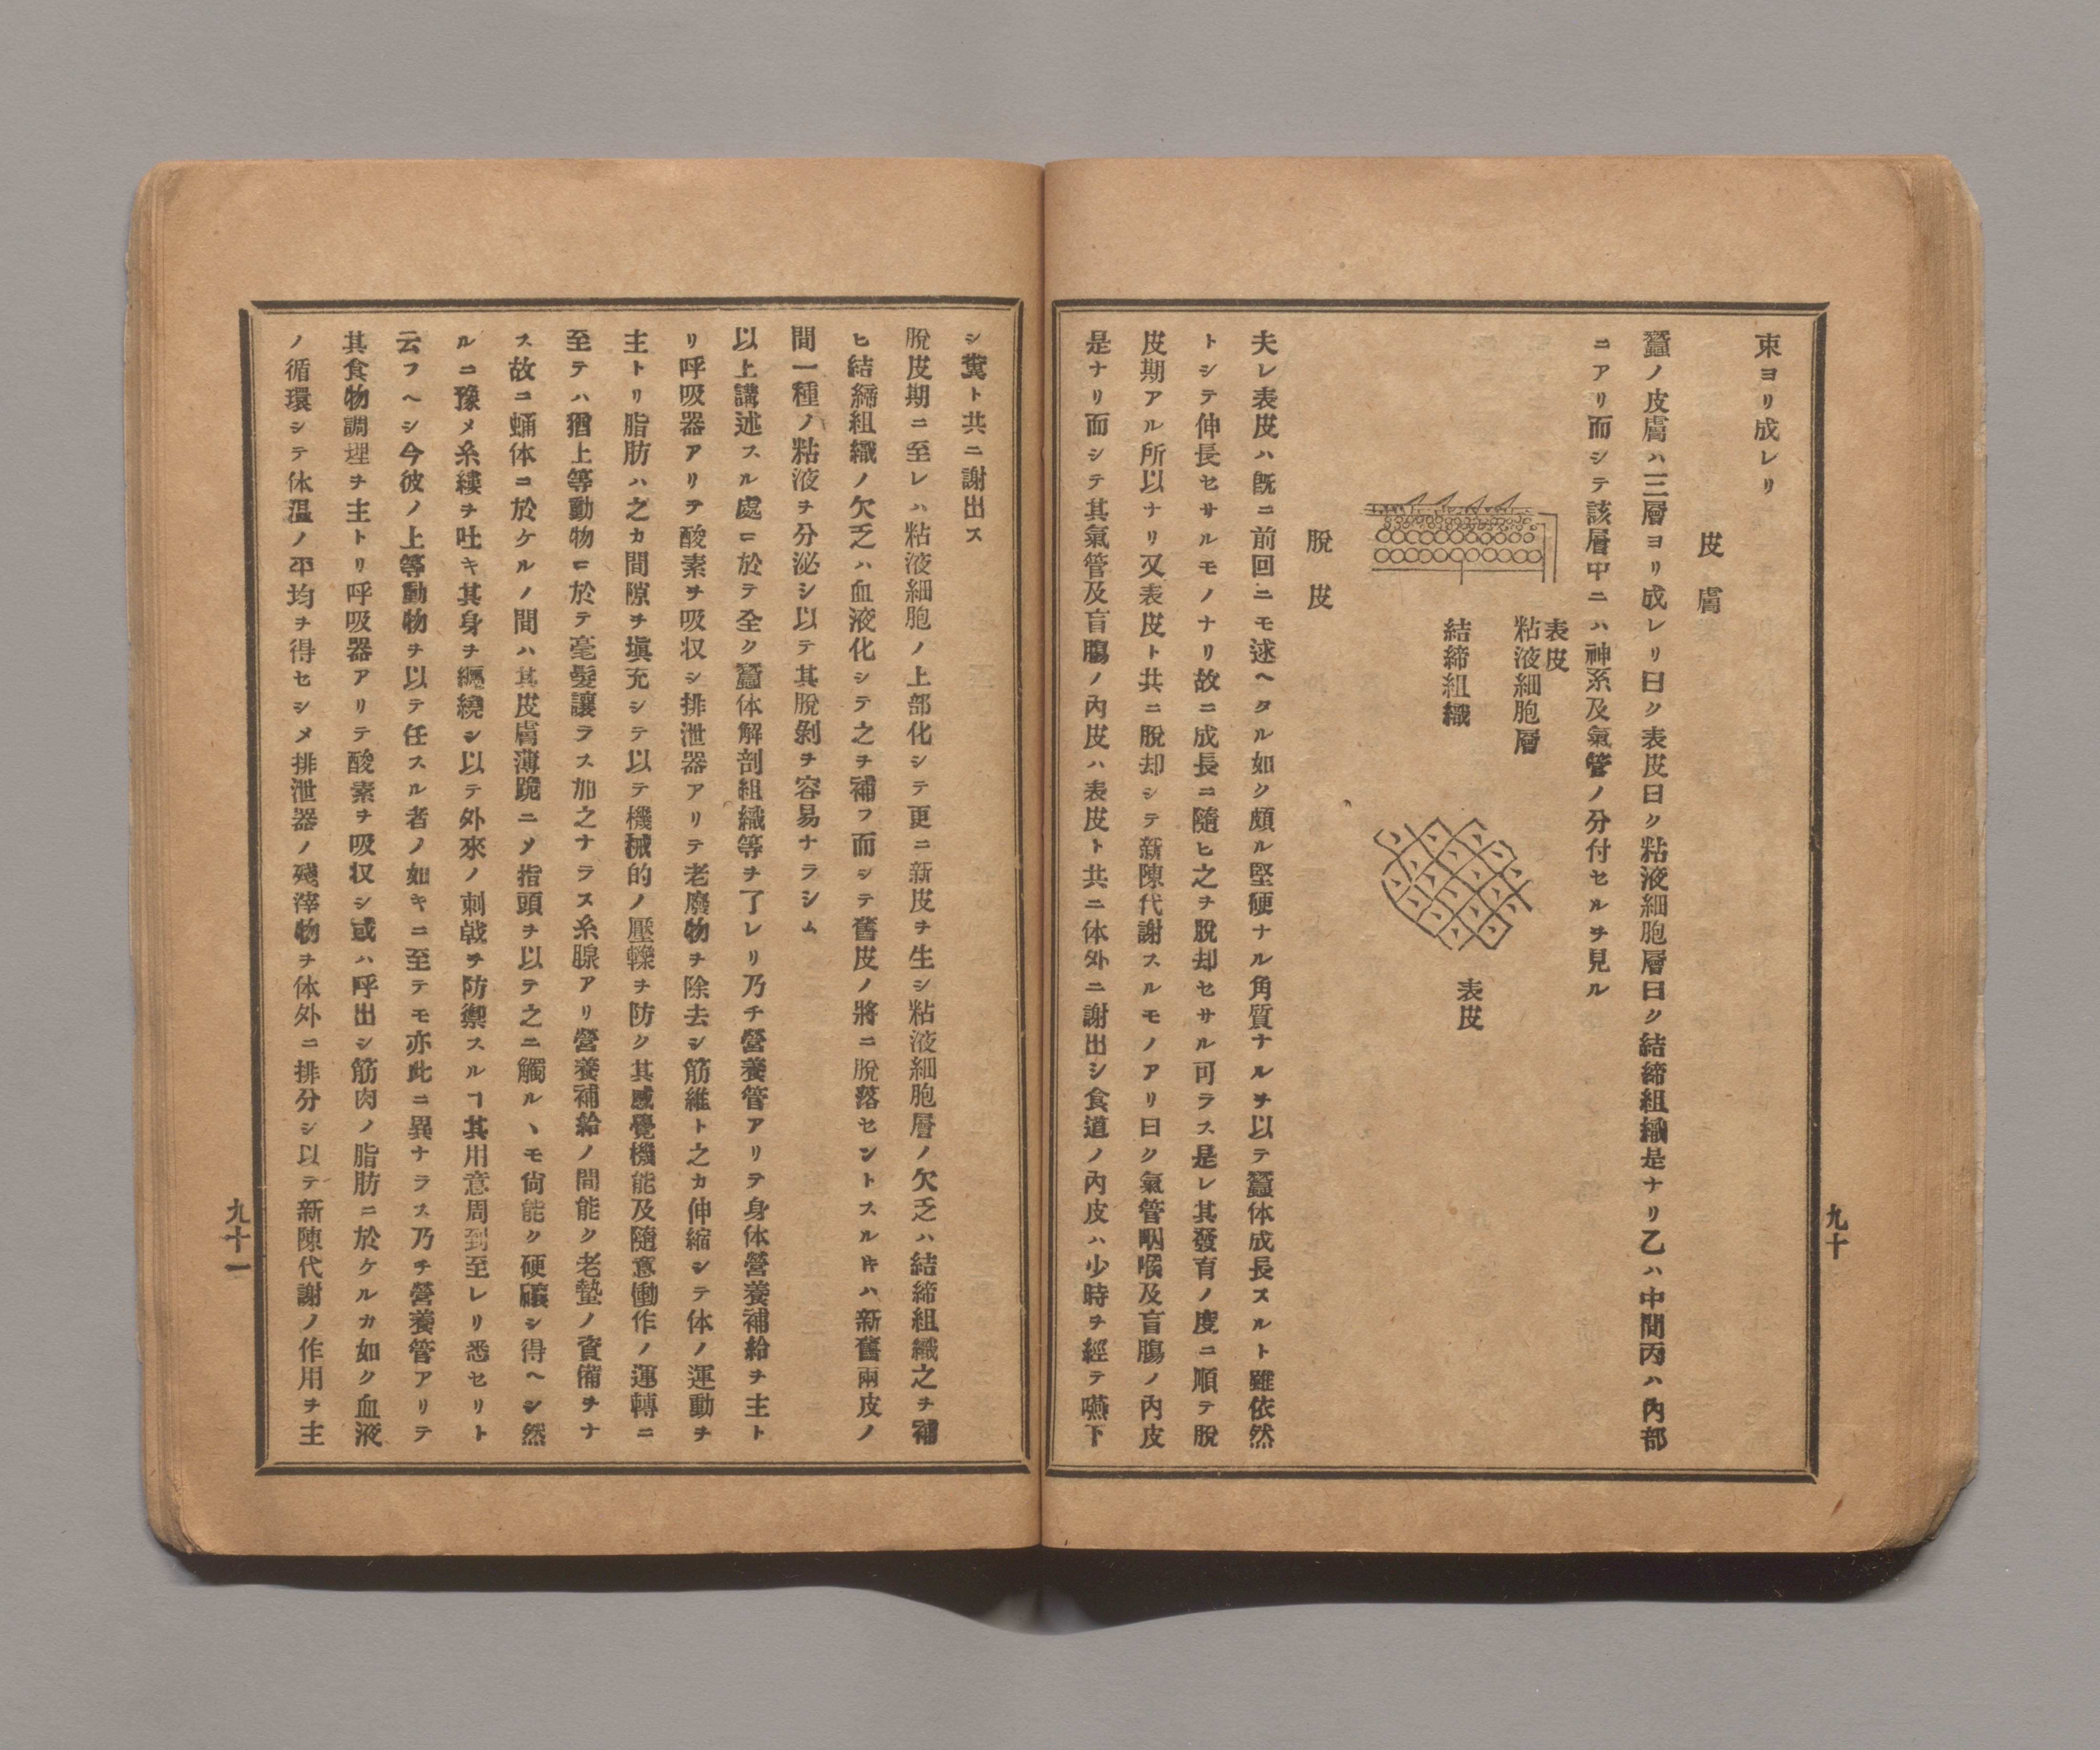 九十
束ヨリ成レリ
皮膚
蠶ノ皮膚ハ三層ヨリ成レリ曰ク表皮曰ク粘液細胞層曰ク結締組織是ナリ乙ハ中間丙ハ内部
ニアリ而シテ該層中ニハ神系及氣管ノ分付セルヲ見ル
表皮
粘液細胞層
結締組織
表皮
脫皮
夫レ表皮ハ既ニ前回ニモ述ヘタル如ク頗ル堅硬ナル角質ナルヲ以テ蠶体成長スルト雖依然
トシテ伸長セサルモノナリ故ニ成長ニ隨ヒ之ヲ脫却セサル可ラス是レ其發育ノ度ニ順テ脫
皮期アル所以ナリ又表皮ト共ニ脫却シテ新陳代謝スルモノアリ曰ク氣管咽喉及盲膓ノ內皮
是ナリ而シテ其氣管及盲膓ノ內皮ハ表皮ト共ニ体外ニ謝出シ食道ノ內皮ハ少時ヲ經テ嚥下
シ糞ト共ニ謝出ス
脫皮期ニ至レハ粘液細胞ノ上部化シテ更ニ新皮ヲ生シ粘液細胞層ノ欠乏ハ結締組織之ヲ補
ヒ結締組織ノ欠乏ハ血液化シテ之ヲ補フ而シテ舊皮ノ將ニ脫落セントスルㇳキハ新舊兩皮ノ
間一種ノ粘液ヲ分泌シ以テ其脫剝ヲ容易ナラシム
以上講述スル處ニ於テ全ク蠶体解剖組織等ヲ了レリ乃チ營養管アリテ身体營養補給ヲ主ト
リ呼吸器アリテ酸素ヲ吸収シ排泄器アリテ老廢物ヲ除去シ筋維ト之カ伸縮シテ体ノ運動ヲ
主トリ脂肪ハ之カ間隙ヲ塡充シテ以テ機械的ノ壓轢ヲ防ク其感覺機能及隨意働作ノ運轉ニ
至テハ猶上等動物ニ於テ毫髮讓ラス加之ナラス糸腺アリ營養補給ノ間能ク老蟄ノ資備ヲナ
ス故ニ蛹体ニ於ケルノ間ハ其皮膚薄跪ニㇱテ指頭ヲ以テ之ニ觸ルヽモ尙能ク硬礦シ得ヘシ然
ルニ豫メ糸縷ヲ吐キ其身ヲ纒繞シ以テ外來ノ刺戟ヲ防禦スルヿ其用意周到至レリ悉セリト
云フヘシ今彼ノ上等動物ヲ以テ任スル者ノ如キニ至テモ亦此ニ異ナラス乃チ營養管アリテ
其食物調理ヲ主トリ呼吸器アリテ酸素ヲ吸収シ或ハ呼出シ筋肉ノ脂肪ニ於ケルカ如ク血液
ノ循環シテ体溫ノ平均ヲ得セシメ排泄器ノ殘滓物ヲ体外ニ排分シ以テ新陳代謝ノ作用ヲ主
九十一